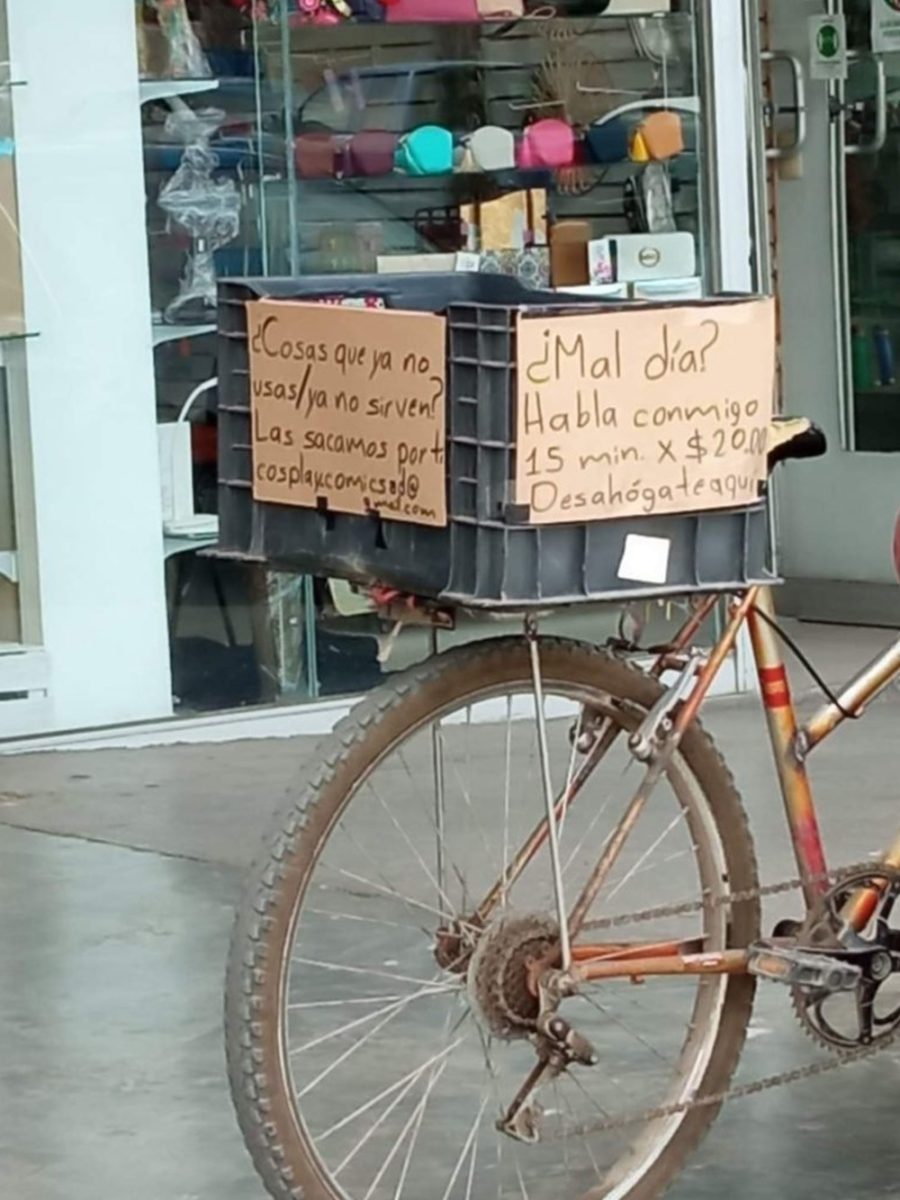 ¿Cosas que ya no
usas/ya no sirven?
Las sacamos por ti
gmail.com
¿Mal día?
Habla conmigo
15 min. X $20.00
Desahógate aquí